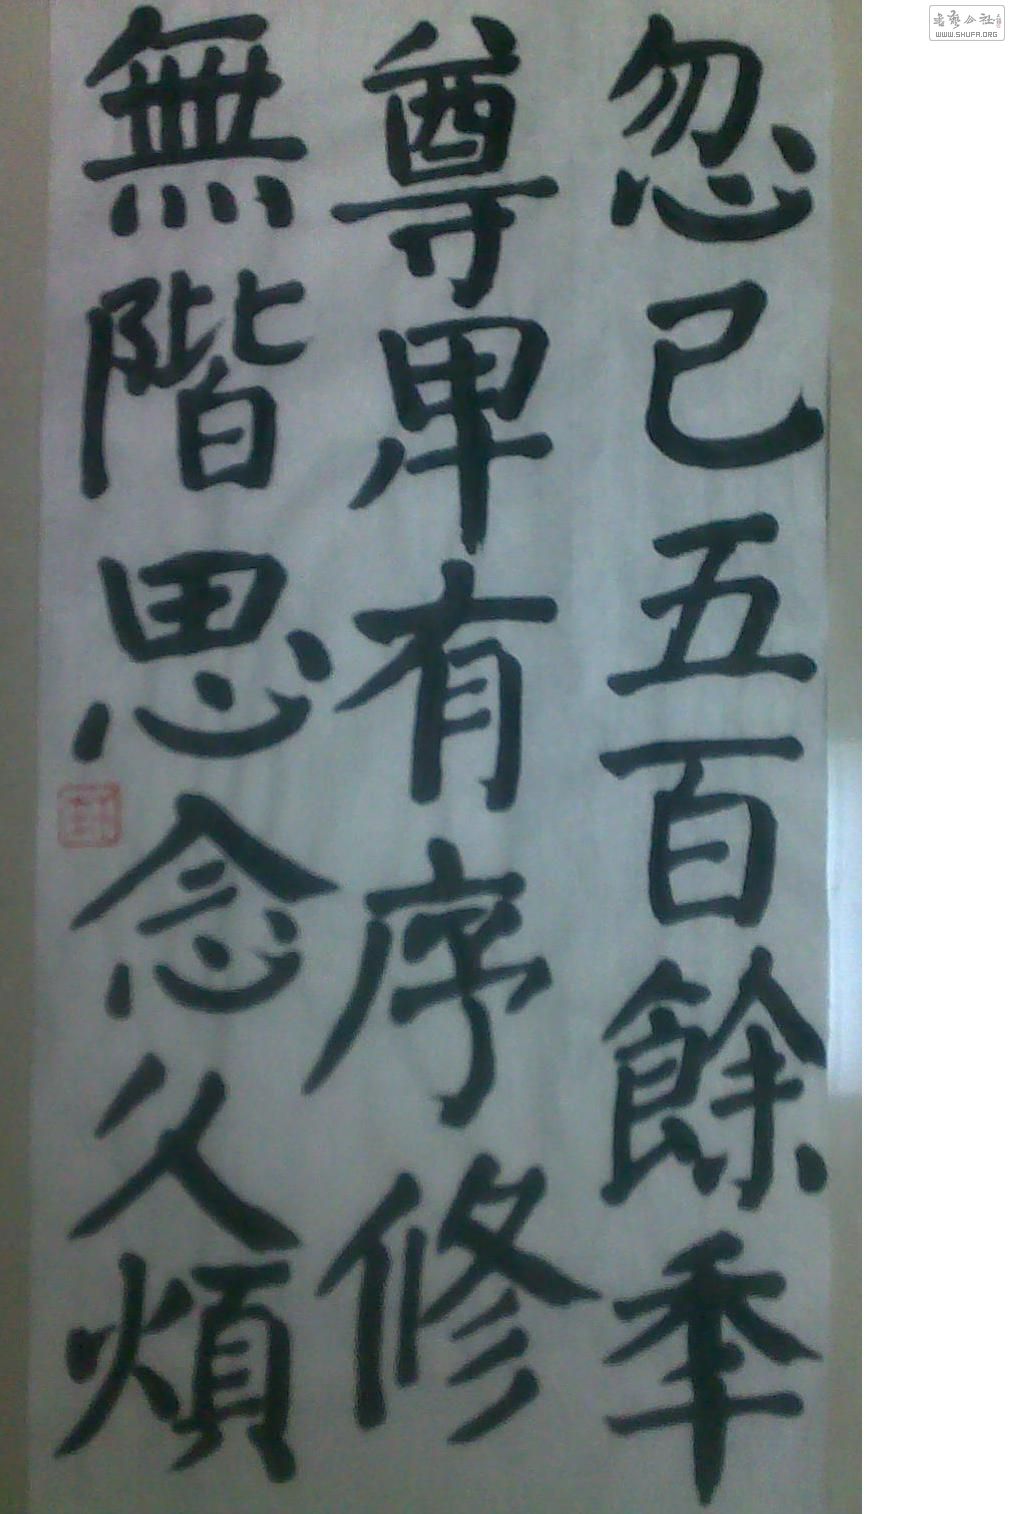 忽已五百餘秊
尊卑有序修
無階思念久煩
書藝公社
WWW.SHUFA.ORG